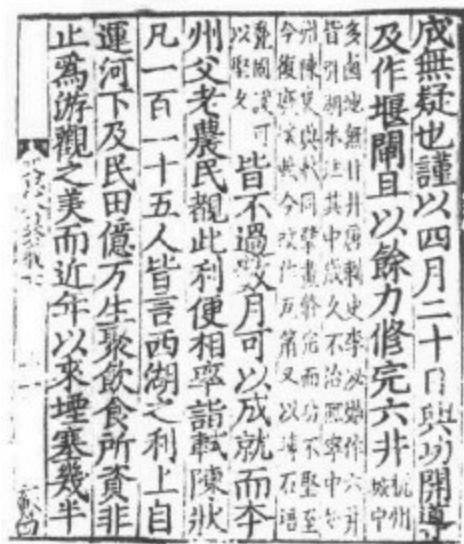 成無疑也謹以四月二十日興功開導
及作堰閘且以餘力修完六井杭州城中
多鹵地無甘井唐刺史李泌始作六井
皆引湖水注其中歲久不治熙寧中知
州陳襄與軾同擘畫修完而功不堅至
今復廢壞軾今改作瓦筒又以磚石培
甃固護可以堅久皆不過數月可以成就而本
州父老農民覩此利便相率詣軾陳狀
凡一百一十五人皆言西湖之利上自
運河下及民田億万生聚飲食所資非
止爲游觀之美而近年以來堙塞幾半